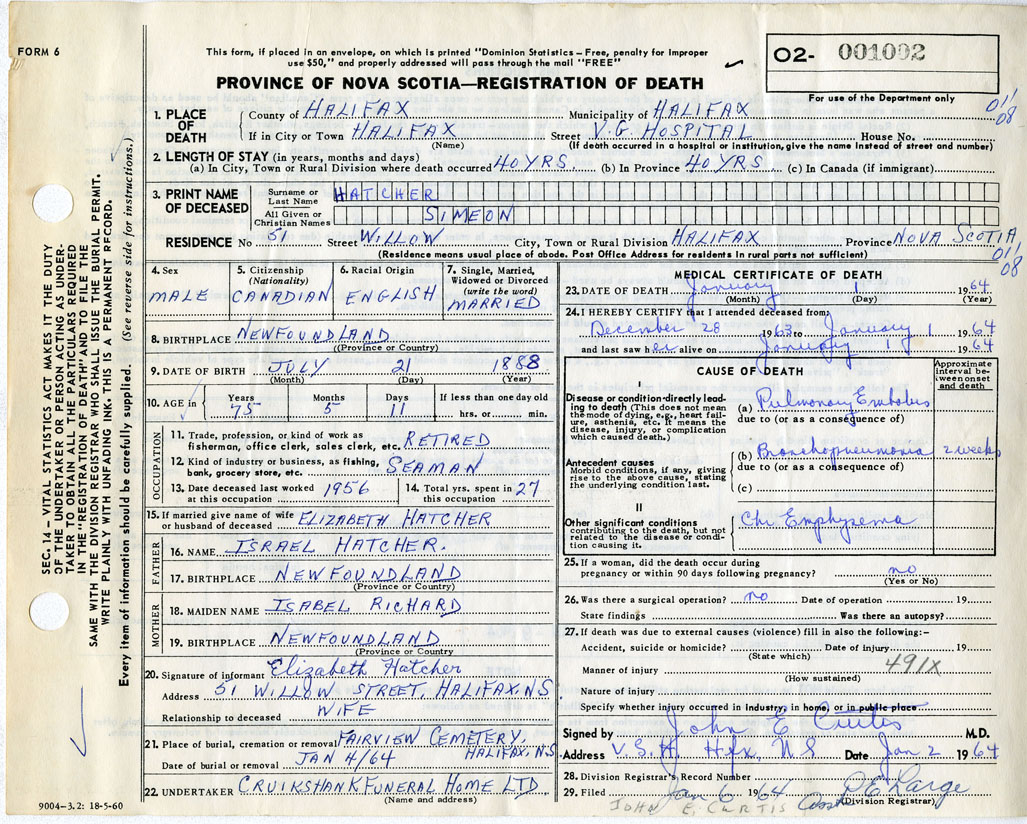 FORM 6
This form, if placed in an envelope, on which is printed "Dominion Statistics – Free, penalty for Improper
use $50," and properly addressed will pass through the mail "FREE"
02- 001002
For use of the Department only
PROVINCE OF NOVA SCOTIA—REGISTRATION OF DEATH
011
08
1. PLACE OF DEATH
County of HALIFAX Municipality of HALIFAX
If in City or Town HALIFAX Street V.G. HOSPITAL House No.
(Name) (If death occurred in a hospital or institution, give the name Instead of street and number)
2. LENGTH OF STAY (in years, months and days)
(a) In City, Town or Rural Division where death occurred 40 YRS (b) In Province 40 YRS (c) In Canada (if immigrant)
3. PRINT NAME OF DECEASED
Surname or Last Name HATCHER
All Given or Christian Names SIMEON
RESIDENCE No 51 Street WILLOW City, Town or Rural Division HALIFAX Province NOVA SCOTIA
(Residence means usual place of abode. Post Office Address for residents in rural parts not sufficient)
011
08
4. Sex MALE
5. Citizenship (Nationality) CANADIAN
6. Racial Origin ENGLISH
7. Single, Married, Widowed or Divorced (write the word) MARRIED
8. BIRTHPLACE NEWFOUNDLAND
(Province or Country)
9. DATE OF BIRTH JULY 21 1888
(Month) (Day) (Year)
10. AGE in Years Months Days If less than one day old
75 5 11 hrs. or min.
OCCUPATION
11. Trade, profession, or kind of work as
fisherman, office clerk, sales clerk, etc. RETIRED
12. Kind of industry or business, as fishing,
bank, grocery store, etc. SEAMAN
13. Date deceased last worked at this occupation 1956
14. Total yrs. spent in this occupation 27
15. If married give name of wife or husband of deceased ELIZABETH HATCHER
FATHER
16. NAME ISRAEL HATCHER.
17. BIRTHPLACE NEWFOUNDLAND
(Province or Country)
MOTHER
18. MAIDEN NAME ISABEL RICHARD
19. BIRTHPLACE NEWFOUNDLAND
(Province or Country
20. Signature of informant Elizabeth Hatcher
Address 51 WILLOW STREET, HALIFAX, N.S.
Relationship to deceased WIFE
21. Place of burial, cremation or removal FAIRVIEW CEMETERY, HALIFAX, N.S.
Date of burial or removal JAN 4/64
22. UNDERTAKER CRUIKSHANK FUNERAL HOME LTD
(Name and address)
9004–3.2: 18-5-60
MEDICAL CERTIFICATE OF DEATH
23. DATE OF DEATH January 1 1964
(Month) (Day) (Year)
24. I HEREBY CERTIFY that I attended deceased from:
December 28 1963 to January 1 1964
and last saw h alive on January 1 1964
CAUSE OF DEATH
Approximate interval between onset and death
I
Disease or condition directly leading to death (This does not mean the mode of dying, e.g., heart failure, asthenia, etc. It means the disease, injury, or complication which caused death.)
(a) Pulmonary Embolus
due to (or as a consequence of)
Antecedent causes
Morbid conditions, if any, giving rise to the above cause, stating the underlying condition last.
(b) Bronchopneumonia 2 weeks
due to (or as a consequence of)
(c)
II
Other significant conditions
contributing to the death, but not related to the disease or condition causing it.
Chr Emphysema
25. If a woman, did the death occur during
pregnancy or within 90 days following pregnancy? no
(Yes or No)
26. Was there a surgical operation? no Date of operation 19
State findings Was there an autopsy?
27. If death was due to external causes (violence) fill in also the following:–
Accident, suicide or homicide? Date of injury 19
(State which)
Manner of injury 491X
(How sustained)
Nature of injury
Specify whether injury occurred in Industry, in home, or in public place
Signed by John E Curtis M.D.
Address V.G.H. Hfx, N S Date Jan 2 1964
28. Division Registrar's Record Number
29. Filed Jan 6 1964 Large
(Division Registrar)
JOHN E. CURTIS
SEC. 14 – VITAL STATISTICS ACT MAKES IT THE DUTY
OF THE UNDERTAKER OR PERSON ACTING AS UNDER-
TAKER TO OBTAIN ALL THE PARTICULARS REQUIRED
IN THE "REGISTRATION OF DEATH" AND TO FILE THE
SAME WITH THE DIVISION REGISTRAR WHO SHALL ISSUE THE BURIAL PERMIT.
WRITE PLAINLY WITH UNFADING INK. THIS IS A PERMANENT RECORD.
Every item of information should be carefully supplied. (See reverse side for instructions.)